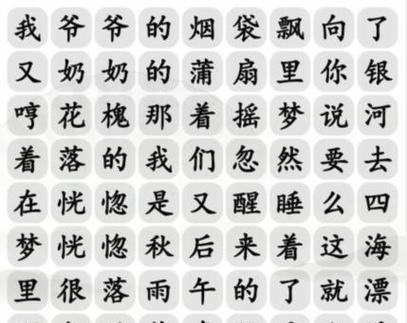 我爷爷的烟袋飘向了
又奶奶的蒲扇里你银
哼花槐那着摇梦说河
着落的我们忽然要去
在恍惚是又醒睡么四
梦恍惚秋后来着这海
里很落雨午的了就漂